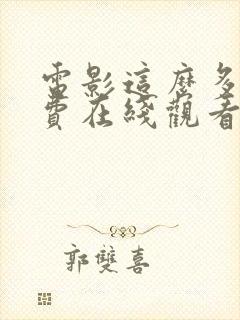 電影這麼多
費在綫觀看
郭雙喜